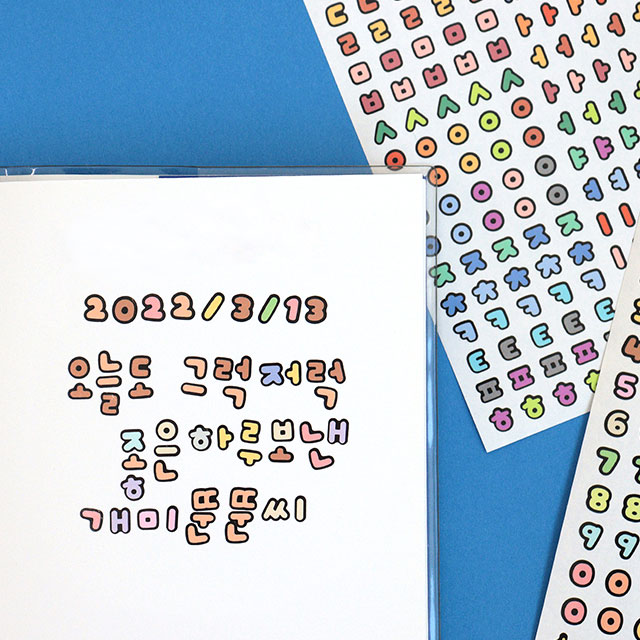 2022/3/13
오늘도 그럭저럭
좋은하루보낸
개미뚠뚠씨